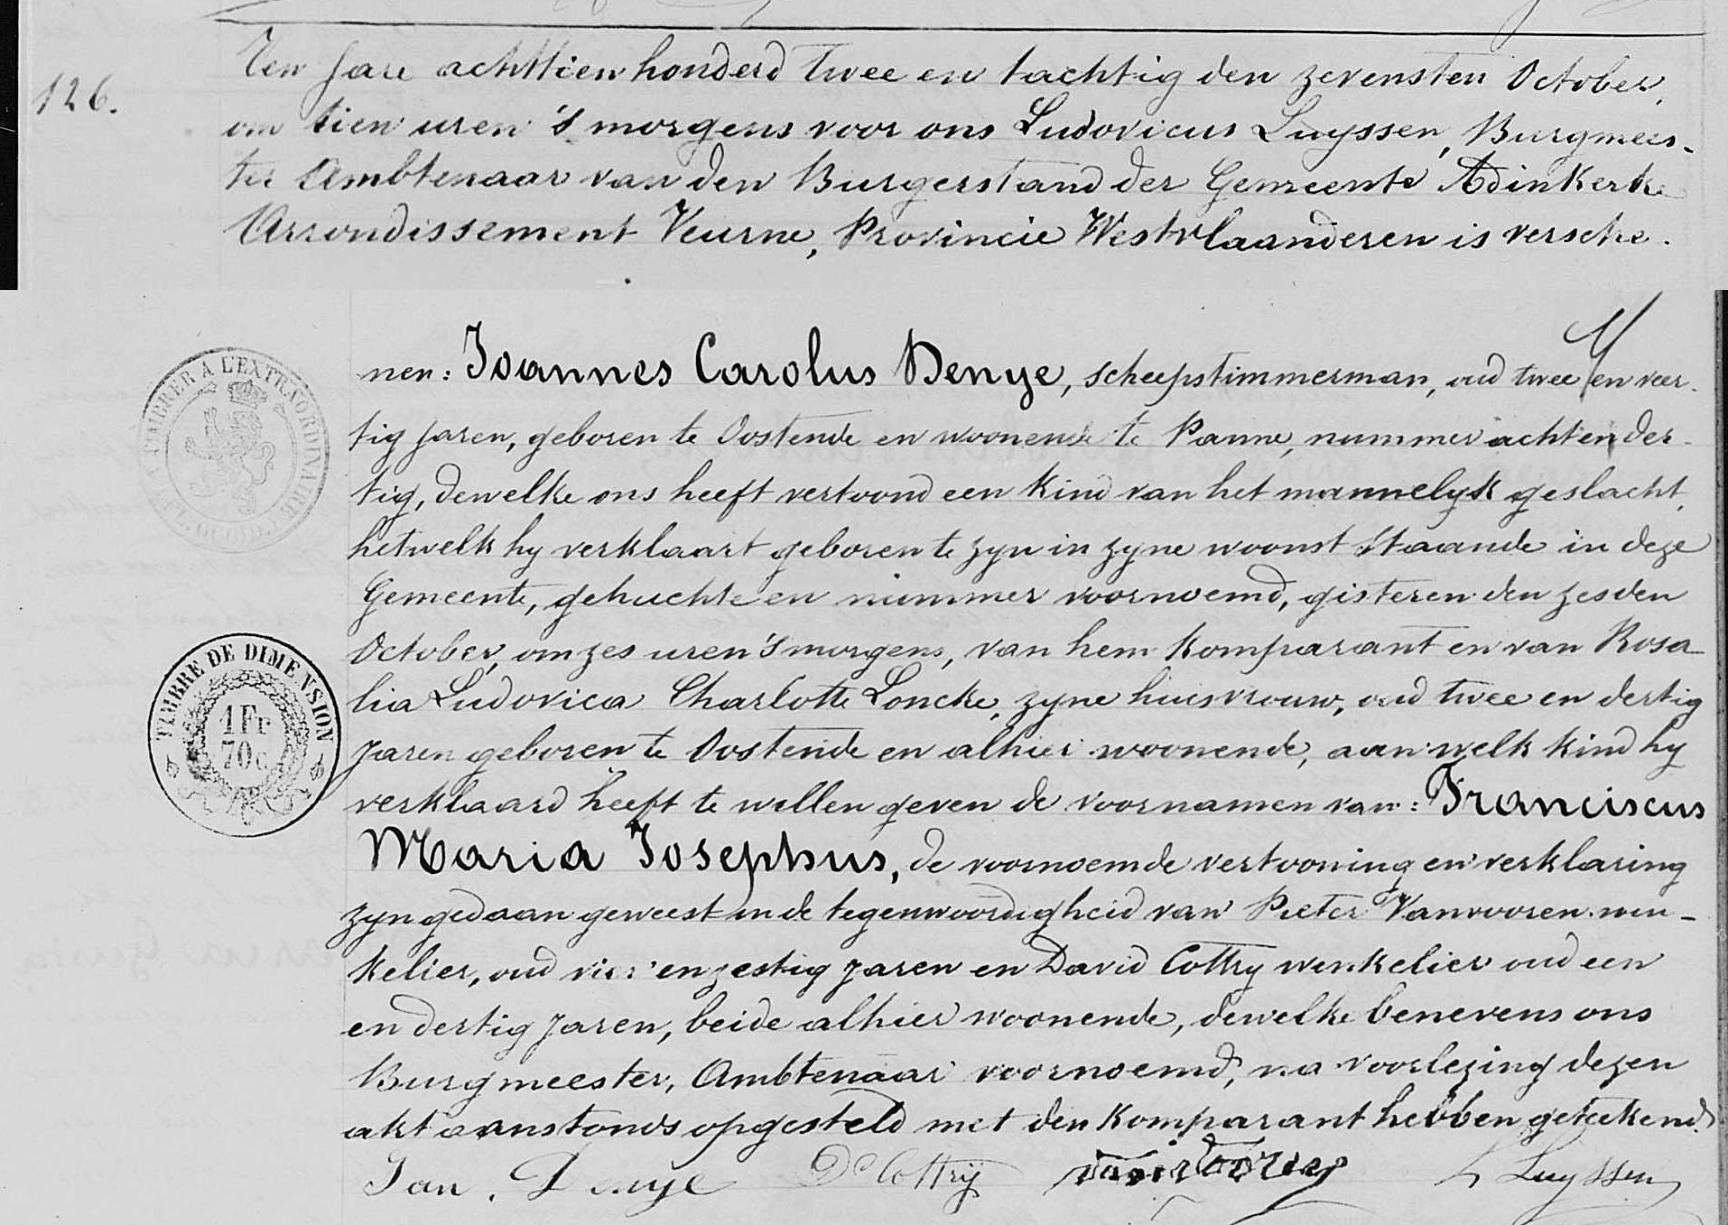 126.
Ten Jare achttien honderd twee en tachtig den zevensten October,
om tien uren 's morgens voor ons Ludovicus Luyssen, Burgmees-
ter Ambtenaar van den Burgerstand der Gemeente Adinkerke
Arrondissement Veurne, Provincie Westvlaanderen is versche-
nen: Joannes Carolus Denye, scheepstimmerman, oud twee en veer-
tig jaren, geboren te Oostende en woonende te Panne, nummer acht en der-
tig, dewelke ons heeft vertoond een kind van het mannelyk geslacht,
hetwelk hy verklaart geboren te zyn in zyne woonst staande in deze
Gemeente, gehuchte en nummer voornoemd, gisteren den zesden
October, om zes uren 's morgens, van hem komparant en van Rosa-
lia Ludovica Charlotte Loncke, zyne huisvrouw, oud twee en dertig
jaren geboren te Oostende en alhier woonende, aan welk kind hy
verklaard heeft te willen geven de voornamen van: Franciscus
Maria Josephus, de voornoemde vertooning en verklaring
zyn gedaan geweest in de tegenwoordigheid van Pieter Vanvooren win-
kelier, oud vier en zestig jaren en David Cottry winkelier oud een
en dertig jaren, beide alhier woonende, dewelke benevens ons
Burgmeester, Ambtenaar voornoemd, na voorlezing dezen
akt aanstonds opgesteld met den komparant hebben geteekend.
Jan. Denye Dd Cottry vanvooren L Luyssen
TIMBRER A L'EXTRAORDINAIRE
TIMBRE DE DIMENSION
1 Fr
70 c